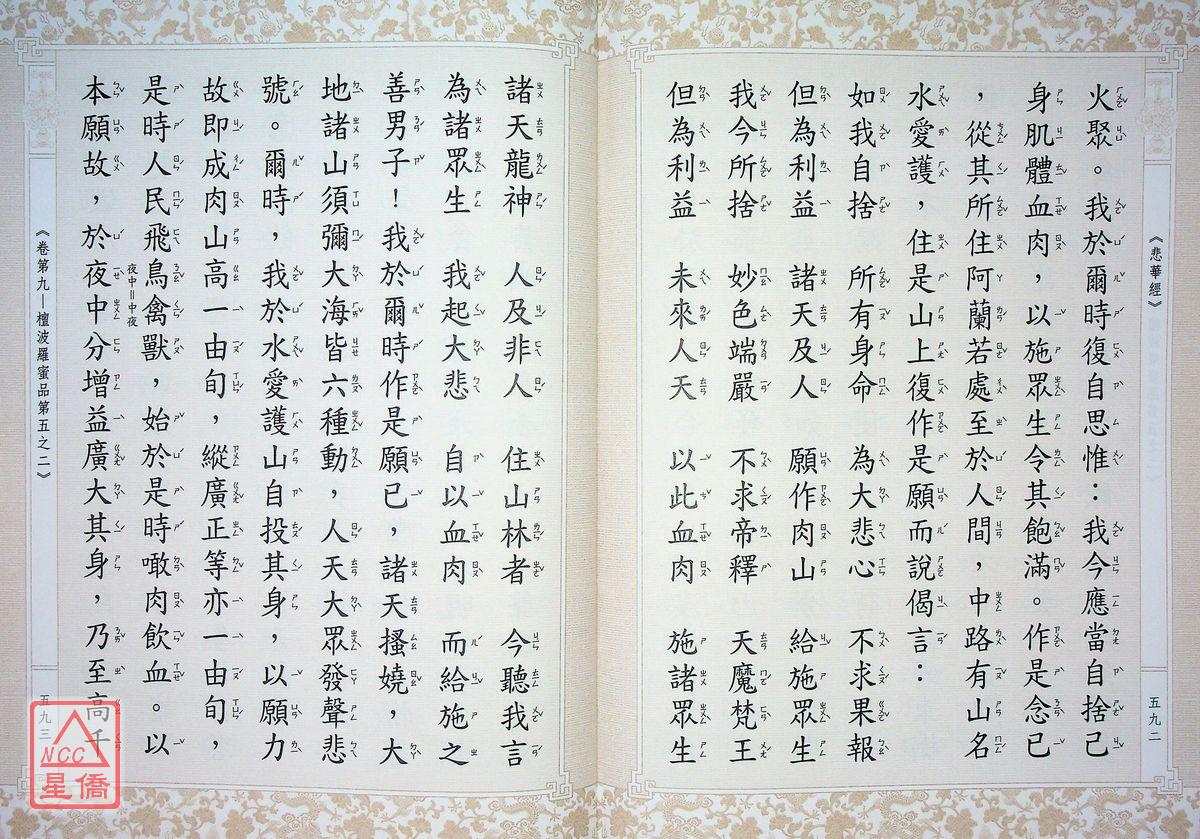 《悲華經》
五九二
火聚。我於爾時復自思惟：我今應當自捨己
身肌體血肉，以施眾生令其飽滿。作是念已
，從其所住阿蘭若處至於人間，中路有山名
水愛護，住是山上復作是願而說偈言：
如我自捨　所有身命　為大悲心　不求果報
但為利益　諸天及人　願作肉山　給施眾生
我今所捨　妙色端嚴　不求帝釋　天魔梵王
但為利益　未來人天　以此血肉　施諸眾生
諸天龍神　人及非人　住山林者　今聽我言
為諸眾生　我起大悲　自以血肉　而給施之
善男子！我於爾時作是願已，諸天搔嬈，大
地諸山須彌大海皆六種動，人天大眾發聲悲
號。爾時，我於水愛護山自投其身，以願力
故即成肉山高一由旬，縱廣正等亦一由旬，
是時人民飛鳥禽獸，始於是時噉肉飲血。以
夜中＝中夜
本願故，於夜中分增益廣大其身，乃至高千
《卷第九－檀波羅蜜品第五之二》
五九三
NCC
星僑